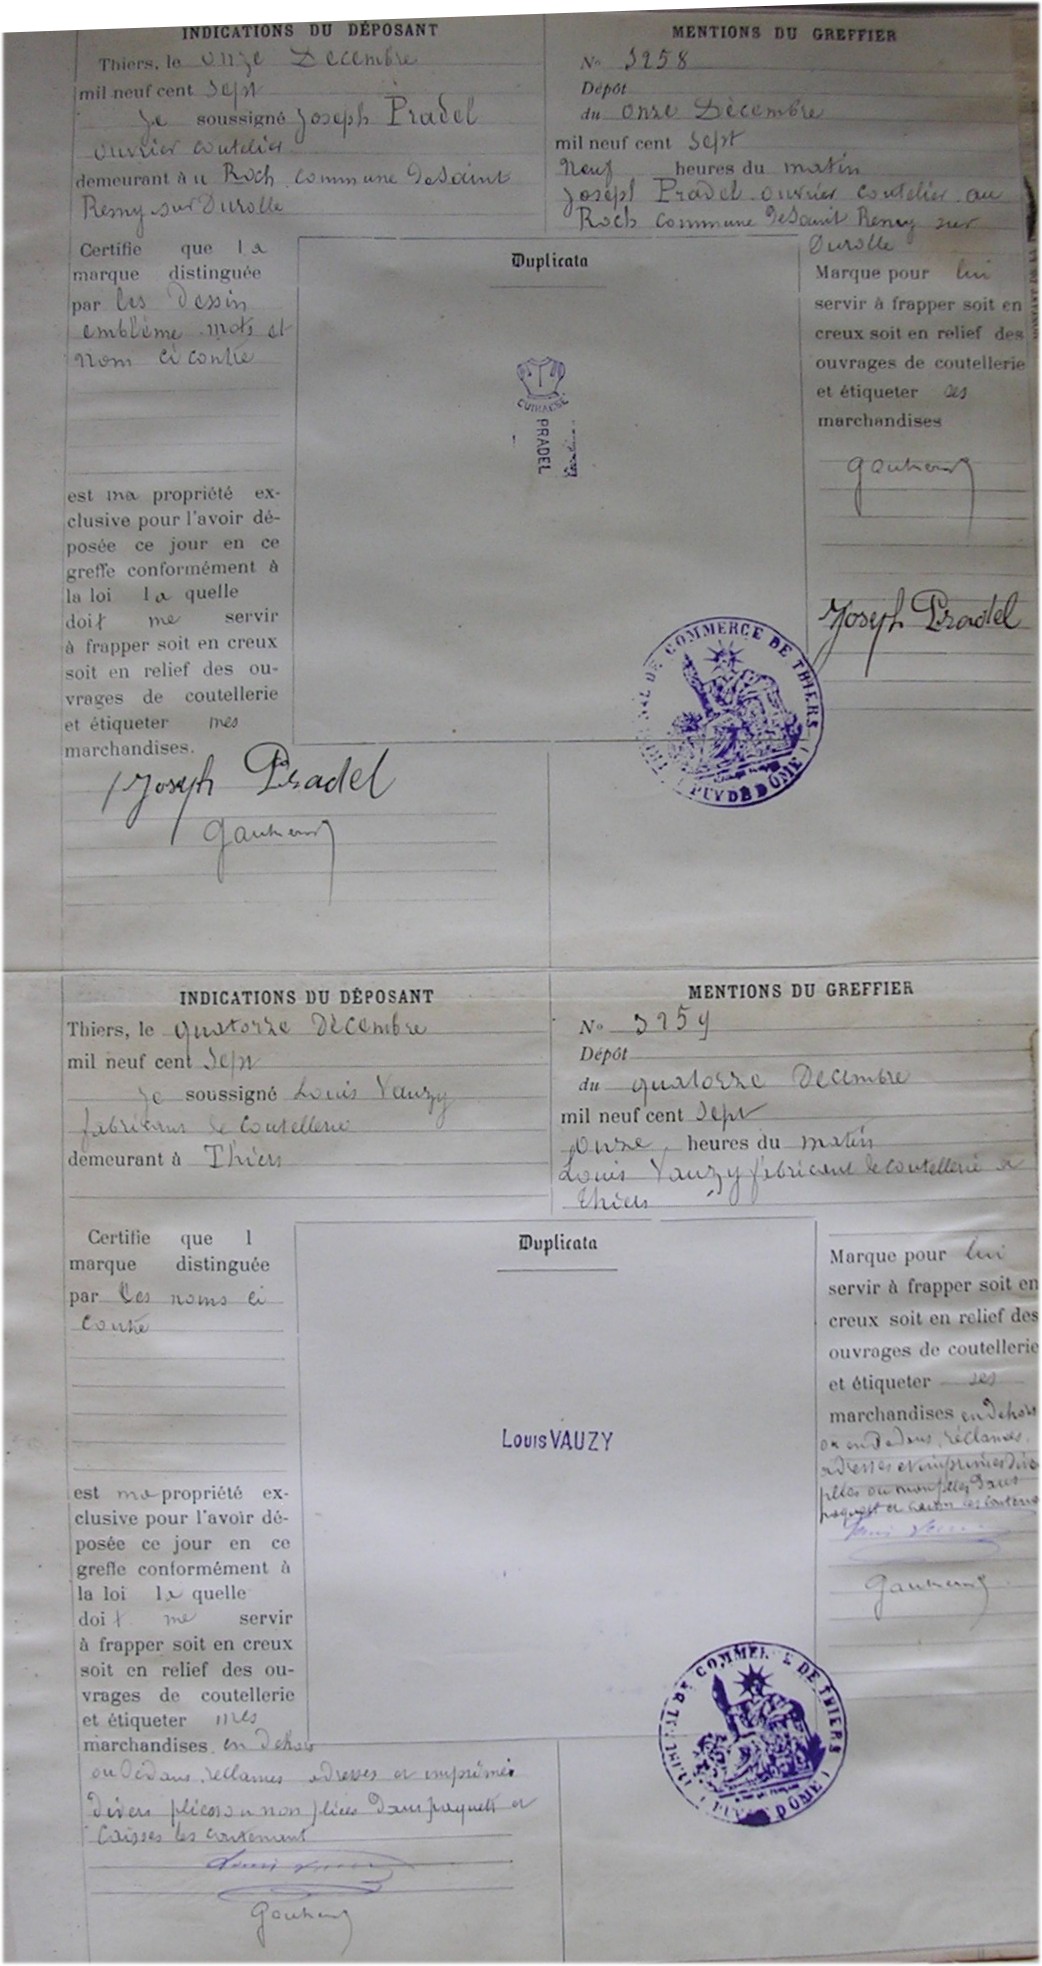 INDICATIONS DU DÉPOSANT
Thiers, le onze Decembre
mil neuf cent sept
je soussigné Joseph Pradel
ouvrier coutelier
demeurant à u Roch commune de Saint
Remy sur Durolle
Certifie que la
marque distinguée
par les Dessin
emblème mots et
nom ci contre
est ma propriété ex-
clusive pour l'avoir dé-
posée ce jour en ce
greffe conformément à
la loi la quelle
doit me servir
à frapper soit en creux
soit en relief des ou-
vrages de coutellerie
et étiqueter mes
marchandises.
Joseph Pradel
MENTIONS DU GREFFIER
N° 3258
Dépôt
du onze Décembre
mil neuf cent sept
Neuf heures du matin
Joseph Pradel ouvrier coutelier au
Roch commune de Saint Remy sur
Durolle
Duplicata
CUIRASSE
PRADEL
Marque pour lui
servir à frapper soit en
creux soit en relief des
ouvrages de coutellerie
et étiqueter ses
marchandises
Joseph Pradel
TRIBUNAL DE COMMERCE DE THIERS
(PUY DE DÔME)
INDICATIONS DU DÉPOSANT
Thiers, le quatorze Décembre
mil neuf cent sept
je soussigné Louis Vauzy
fabricant de coutellerie
demeurant à Thiers
Certifie que l
marque distinguée
par les noms ci
contre
est ma propriété ex-
clusive pour l'avoir dé-
posée ce jour en ce
greffe conformément à
la loi la quelle
doit me servir
à frapper soit en creux
soit en relief des ou-
vrages de coutellerie
et étiqueter mes
marchandises. en dehors
ou dedans, reclames adresses et imprimés
divers pliées ou non pliées dans paquets et
caisses les contenant
MENTIONS DU GREFFIER
N° 3259
Dépôt
du quatorze Decembre
mil neuf cent sept
onze heures du matin
Louis Vauzy fabricant de coutellerie a
Thiers
Duplicata
LOUIS VAUZY
Marque pour lui
servir à frapper soit en
creux soit en relief des
ouvrages de coutellerie
et étiqueter ses
marchandises en dehors
ou en dedans, réclames,
adresses et imprimés
TRIBUNAL DE COMMERCE DE THIERS
(PUY DE DÔME)